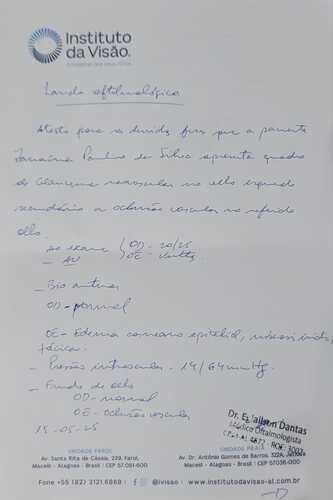 Instituto
da Visão.
Laudo oftalmológico
Atesto para os devidos fins que a paciente
Janaína Paulino da Silva apresenta quadro
de Glaucoma neovascular no olho esquerdo
secundário a oclusão vascular no referido
olho.
Ao exame { OD - 20/25
- AV { OE - Vultos
- Bio anterior
OD - normal
OE - Edema corneano epitelial,
- Pressão intraocular - 14/64 mmHg
- Fundo de olho
OD - normal
OE - Oclusão vascular
15-05-25
Dantas
Médico Oftalmologista
UNIDADE FAROL
Av. Santa Rita de Cássia, 229, Farol,
Maceió - Alagoas - Brasil | CEP 57.051-600
UNIDADE PRAIA
Av. Dr. Antônio Gomes de Barros, 122A, Jatiúca
Maceió - Alagoas - Brasil | CEP 57036-000
Fone +55 (82) 3121.6868 | @ivisao | www.institutodavisao-al.com.br